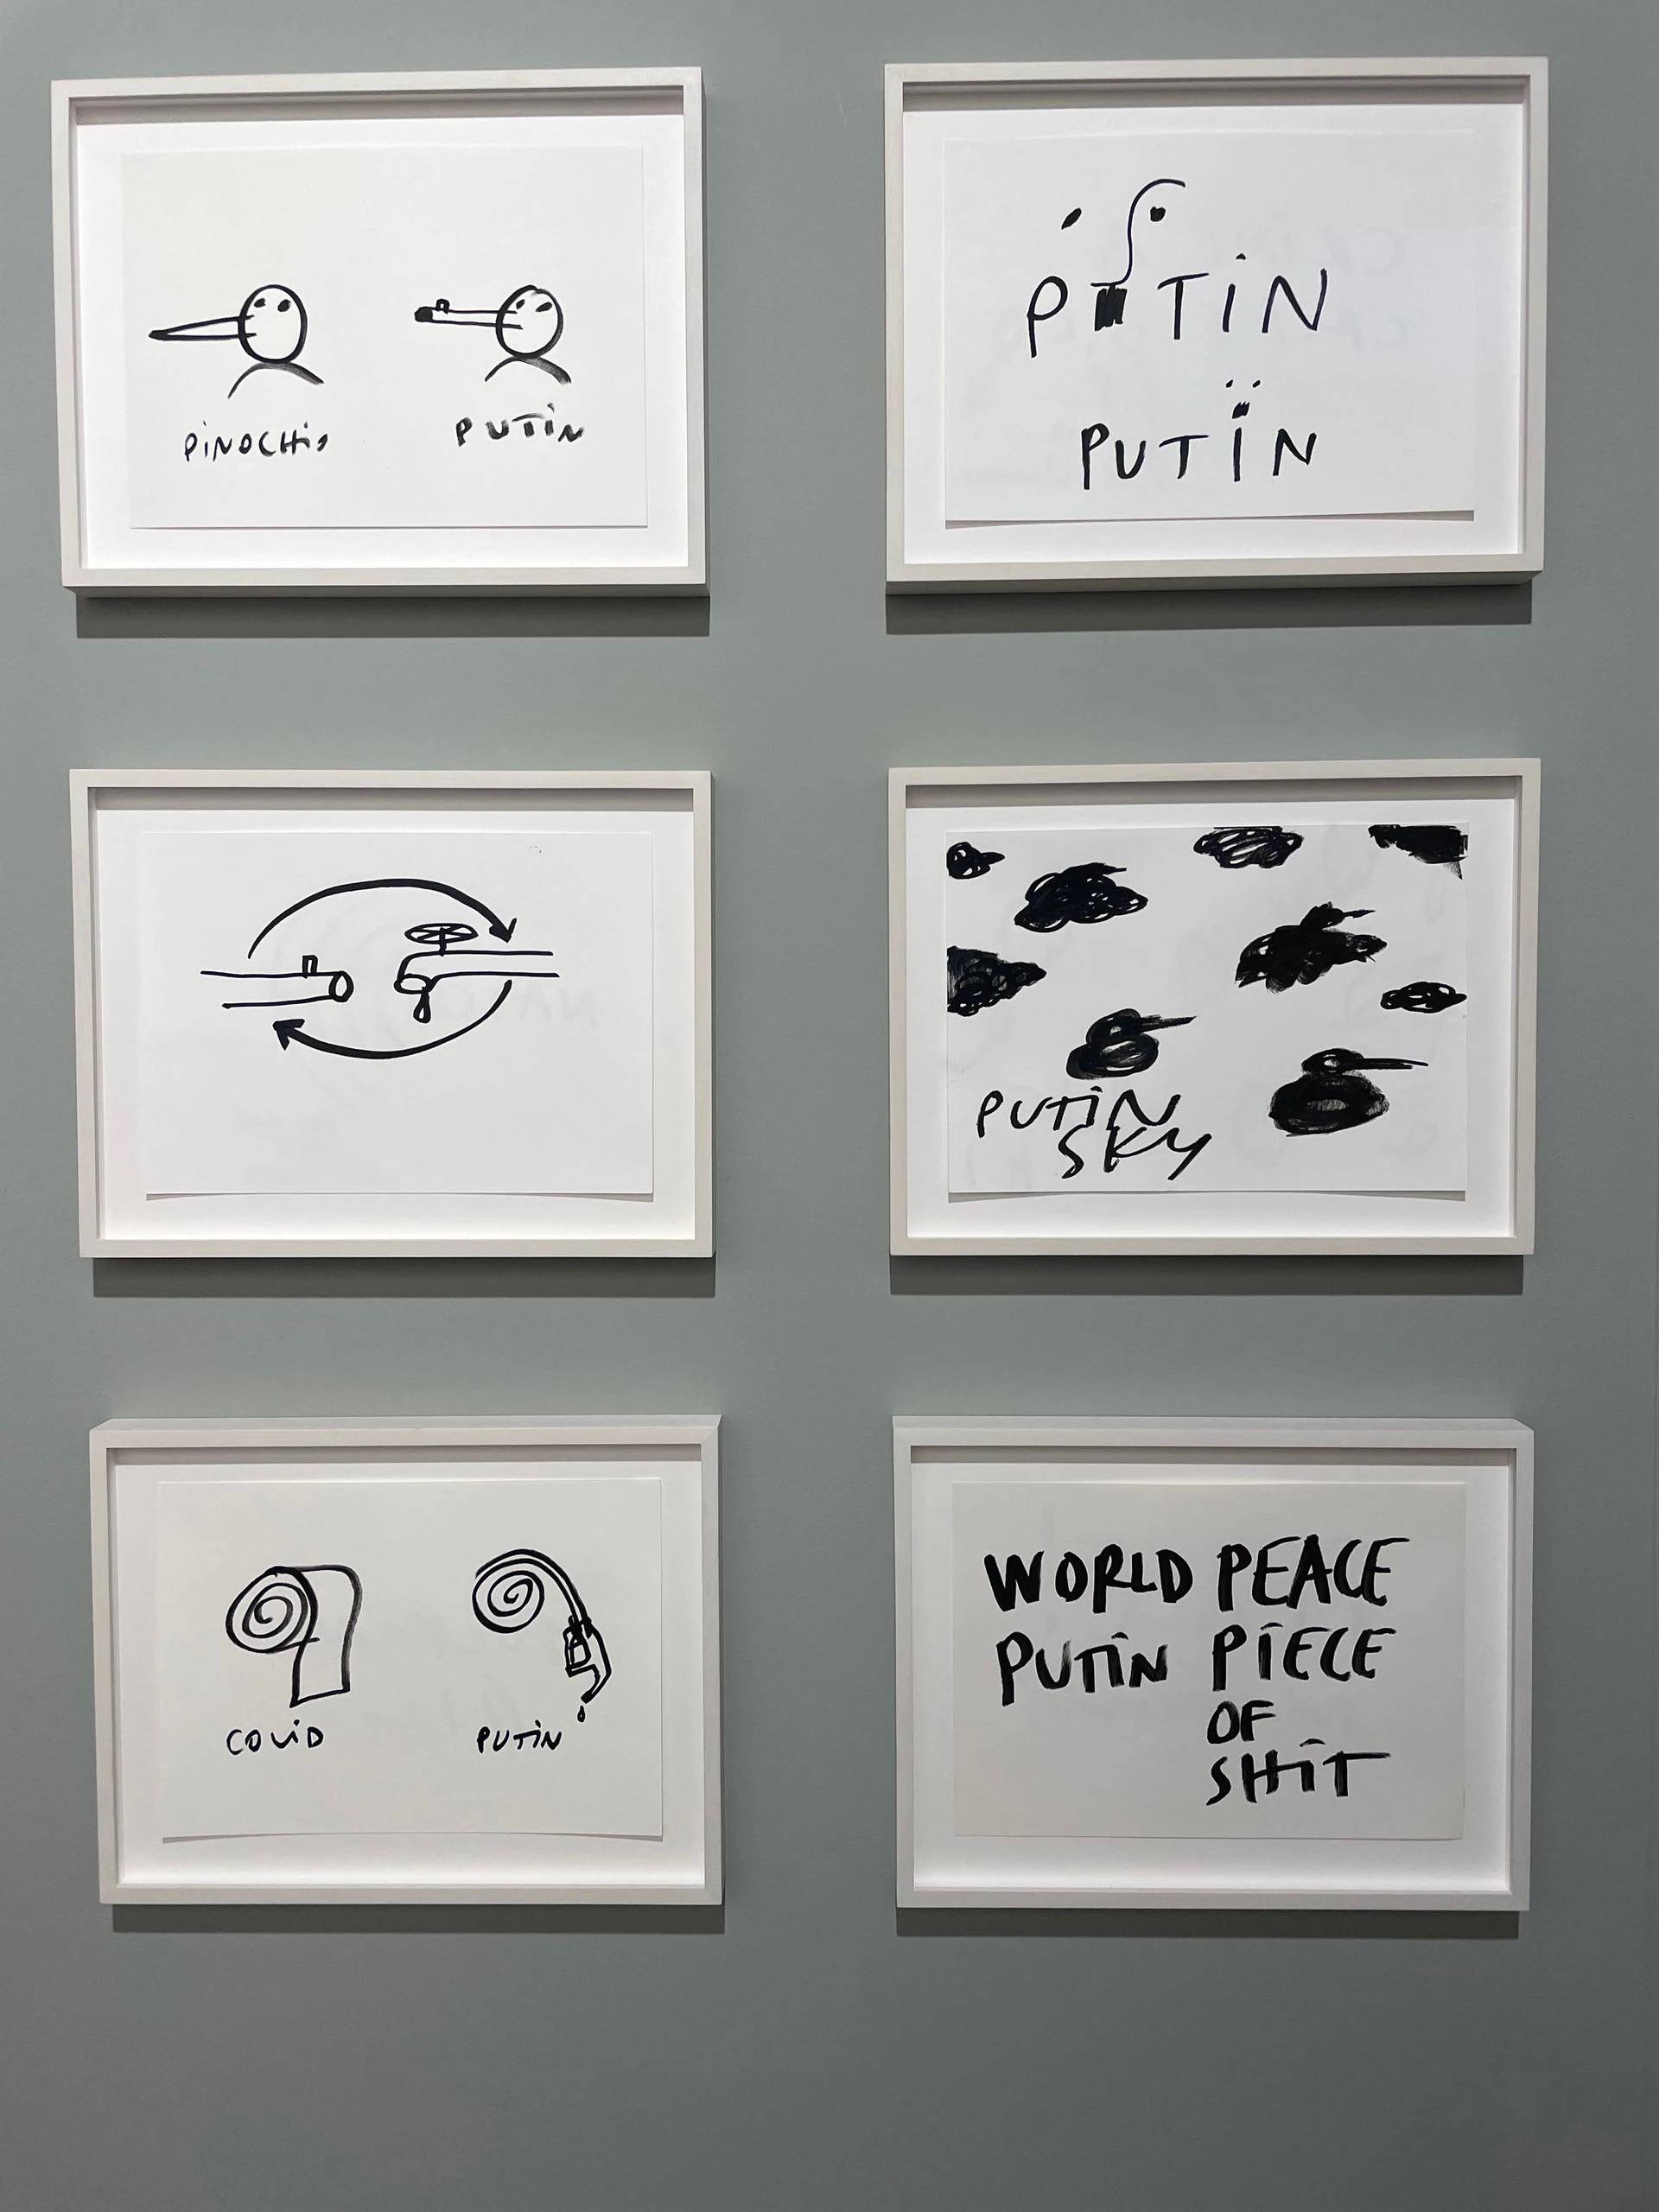 PiNOCHio
PUTiN
PUTiN
PUTïN
PUTiN
SKY
COViD
PUTiN
WORLD PEACE
PUTiN PiECE
OF
SHiT